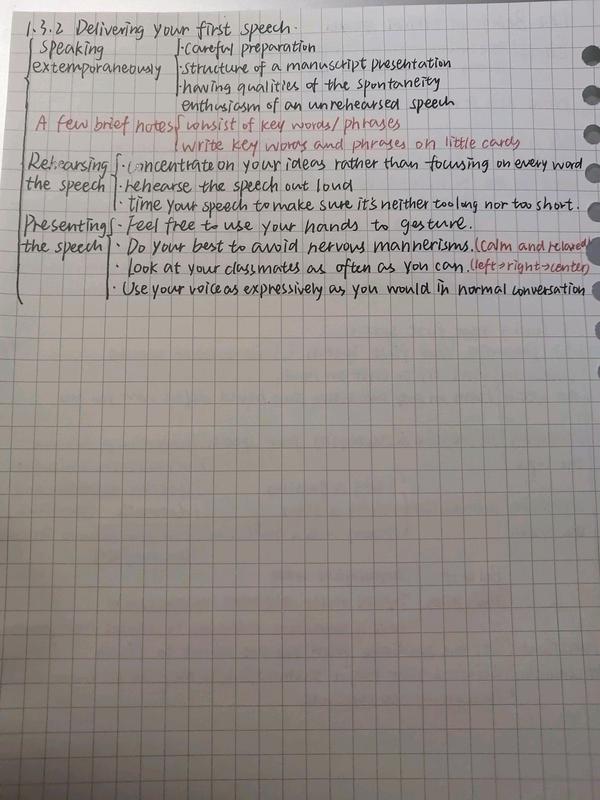 1.3.2 Delivering your first speech.
speaking extemporaneously
· careful preparation
· structure of a manuscript presentation
· having qualities of the spontaneity
enthusiasm of an unrehearsed speech
A few brief notes
consist of key words/phrases
write key words and phrases on little cards
Rehearsing the speech
· concentrate on your ideas rather than focusing on every word
· rehearse the speech out loud
· time your speech to make sure it's neither too long nor too short.
Presenting the speech
· Feel free to use your hands to gesture.
· Do your best to avoid nervous mannerisms. (calm and relaxed)
· Look at your classmates as often as you can. (left→right→center)
· Use your voice as expressively as you would in normal conversation